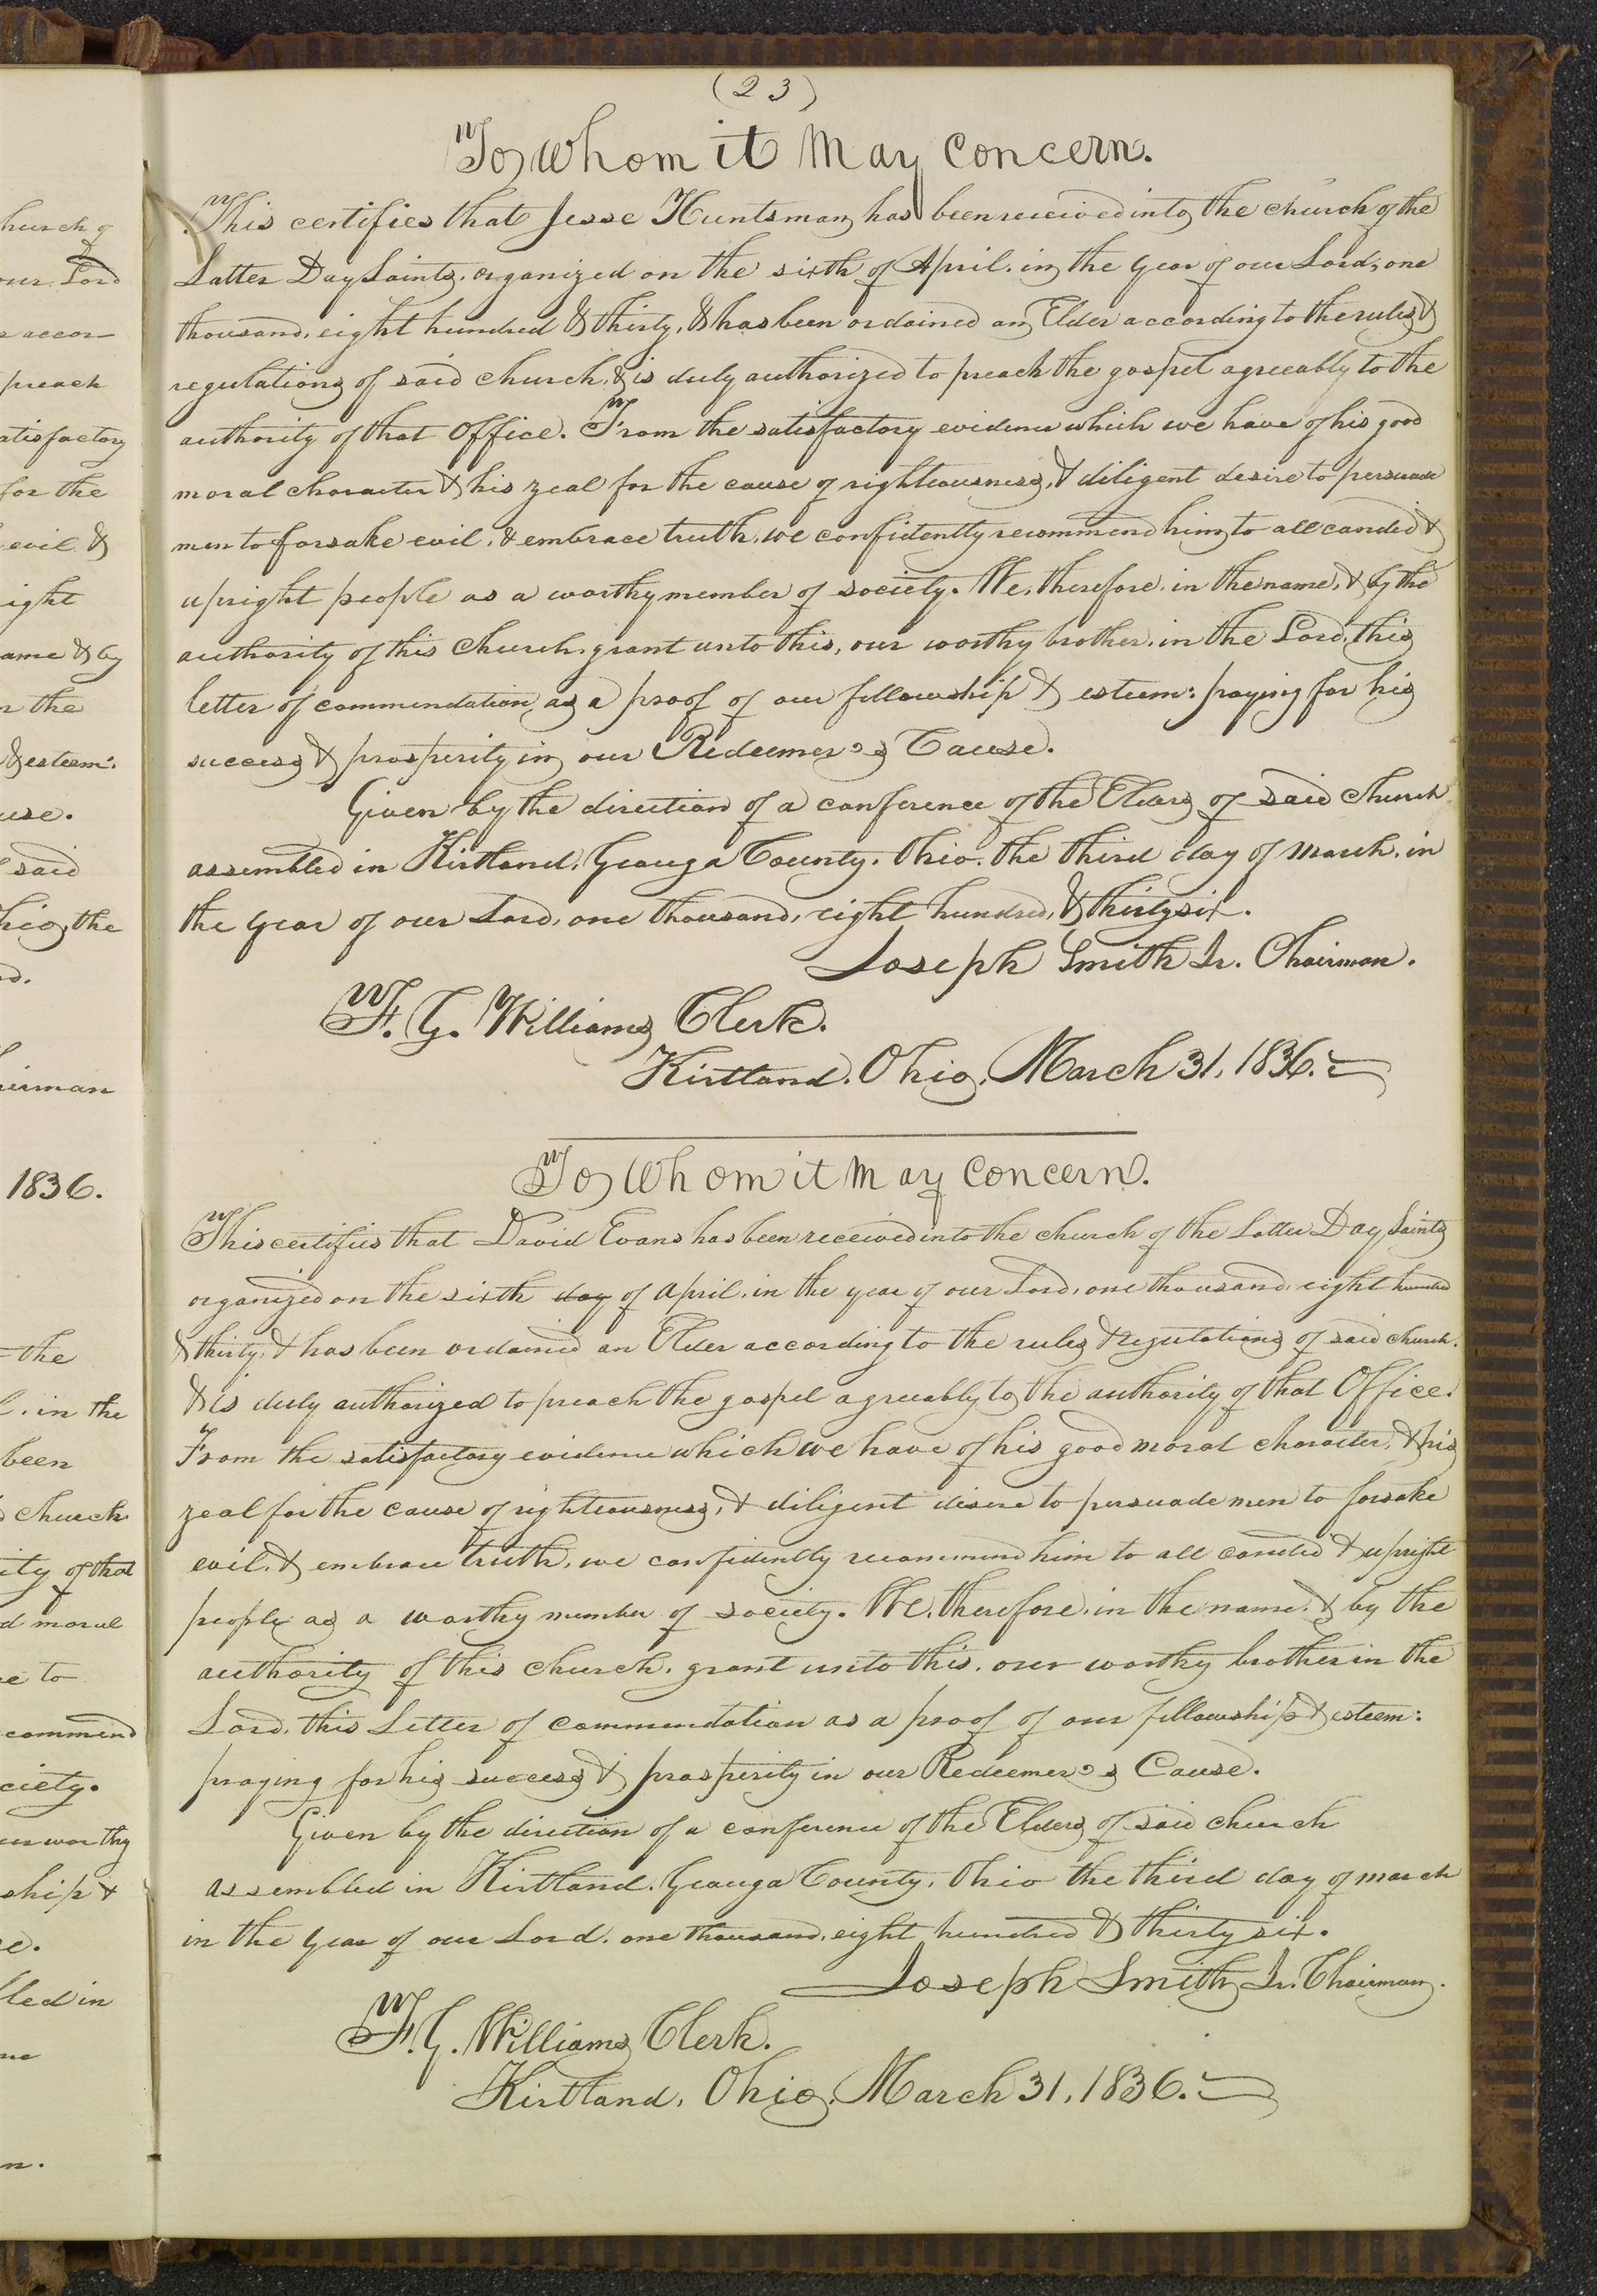 (23)
To Whom it May Concern.
This certifies that Jesse Huntsman has been received into the church of the
Latter Day Saints. organized on the sixth of April. in the year of our Lord, one
thousand, eight hundred & thirty, & has been ordained an Elder according to the rules &
regulations of said church, & is duly authorized to preach the gospel agreeably to the
authority of that Office. From the satisfactory evidence which we have of his good
moral character & his zeal for the cause of righteousness, & diligent desire to persuade
men to forsake evil, & embrace truth, we confidently recommend him to all candid &
upright people as a worthy member of society. We, therefore, in the name, & by the
authority of this Church, grant unto this, our worthy brother, in the Lord, this
letter of commendation as a proof of our fellowship & esteem: praying for his
success & prosperity in our Redeemer's Cause.
Given by the direction of a conference of the Elders of said church
assembled in Kirtland, Geauga County. Ohio. the third day of March. in
the year of our Lord, one thousand, eight hundred, & thirty six.
Joseph Smith Jr. Chairman.
F. G. Williams Clerk.
Kirtland, Ohio, March 31, 1836.
To Whom it May Concern.
This certifies that David Evans has been received into the church of the Latter Day Saints
organized on the sixth day of April, in the year of our Lord, one thousand, eight hundred
& thirty, & has been ordained an Elder according to the rules & regulations of said church.
& is duly authorized to preach the gospel agreeably to the authority of that Office.
From the satisfactory evidence which we have of his good moral character, & his
zeal for the cause of righteousness, & diligent desire to persuade men to forsake
evil, & embrace truth, we confidently recommend him to all candid & upright
people as a worthy member of society. We, therefore, in the name, & by the
authority of this church, grant unto this, our worthy brother in the
Lord, this Letter of commendation as a proof of our fellowship & esteem:
praying for his success & prosperity in our Redeemer's Cause.
Given by the direction of a conference of the Elders of said church
assembled in Kirtland. Geauga County, Ohio the third day of march
in the year of our Lord, one thousand, eight hundred & thirty six.
Joseph Smith Jr. Chairman.
F. G. Williams Clerk.
Kirtland, Ohio, March 31, 1836.